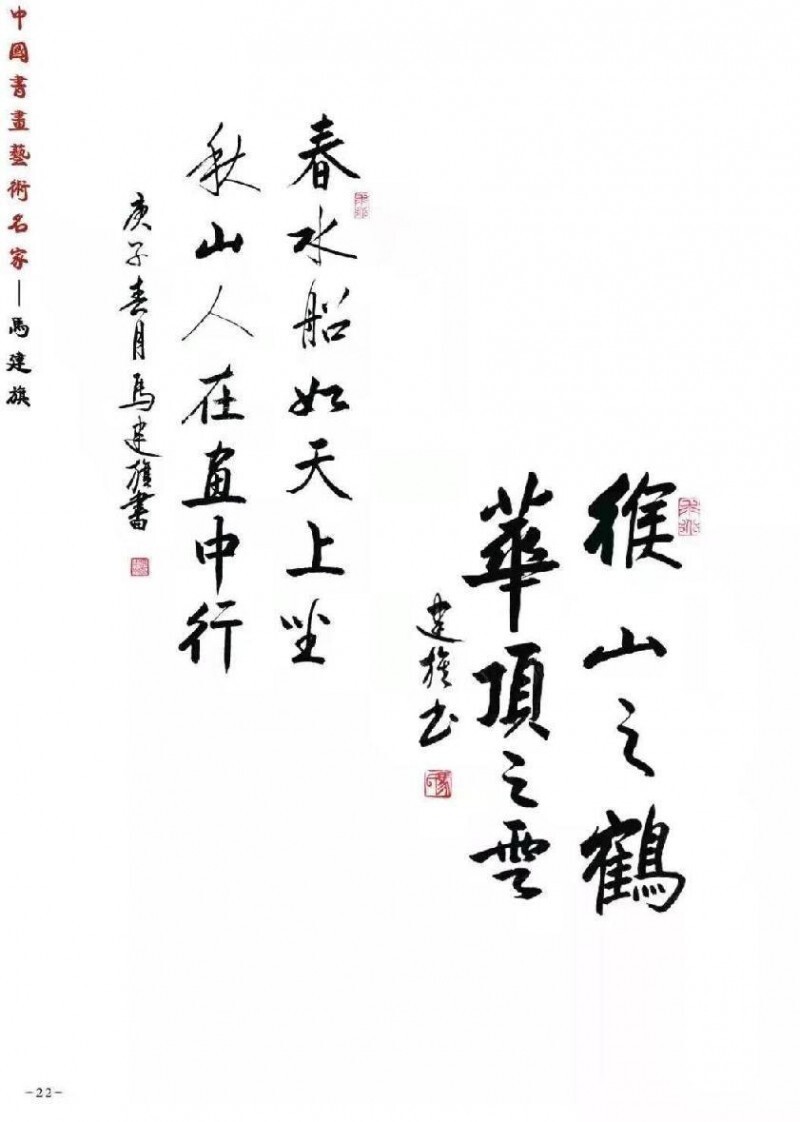 中國書畫藝術名家—馬建旗
猴山之鶴
華頂之雲
建旗书
春水船如天上坐
秋山人在畫中行
庚子春月馬建旗書
-22-